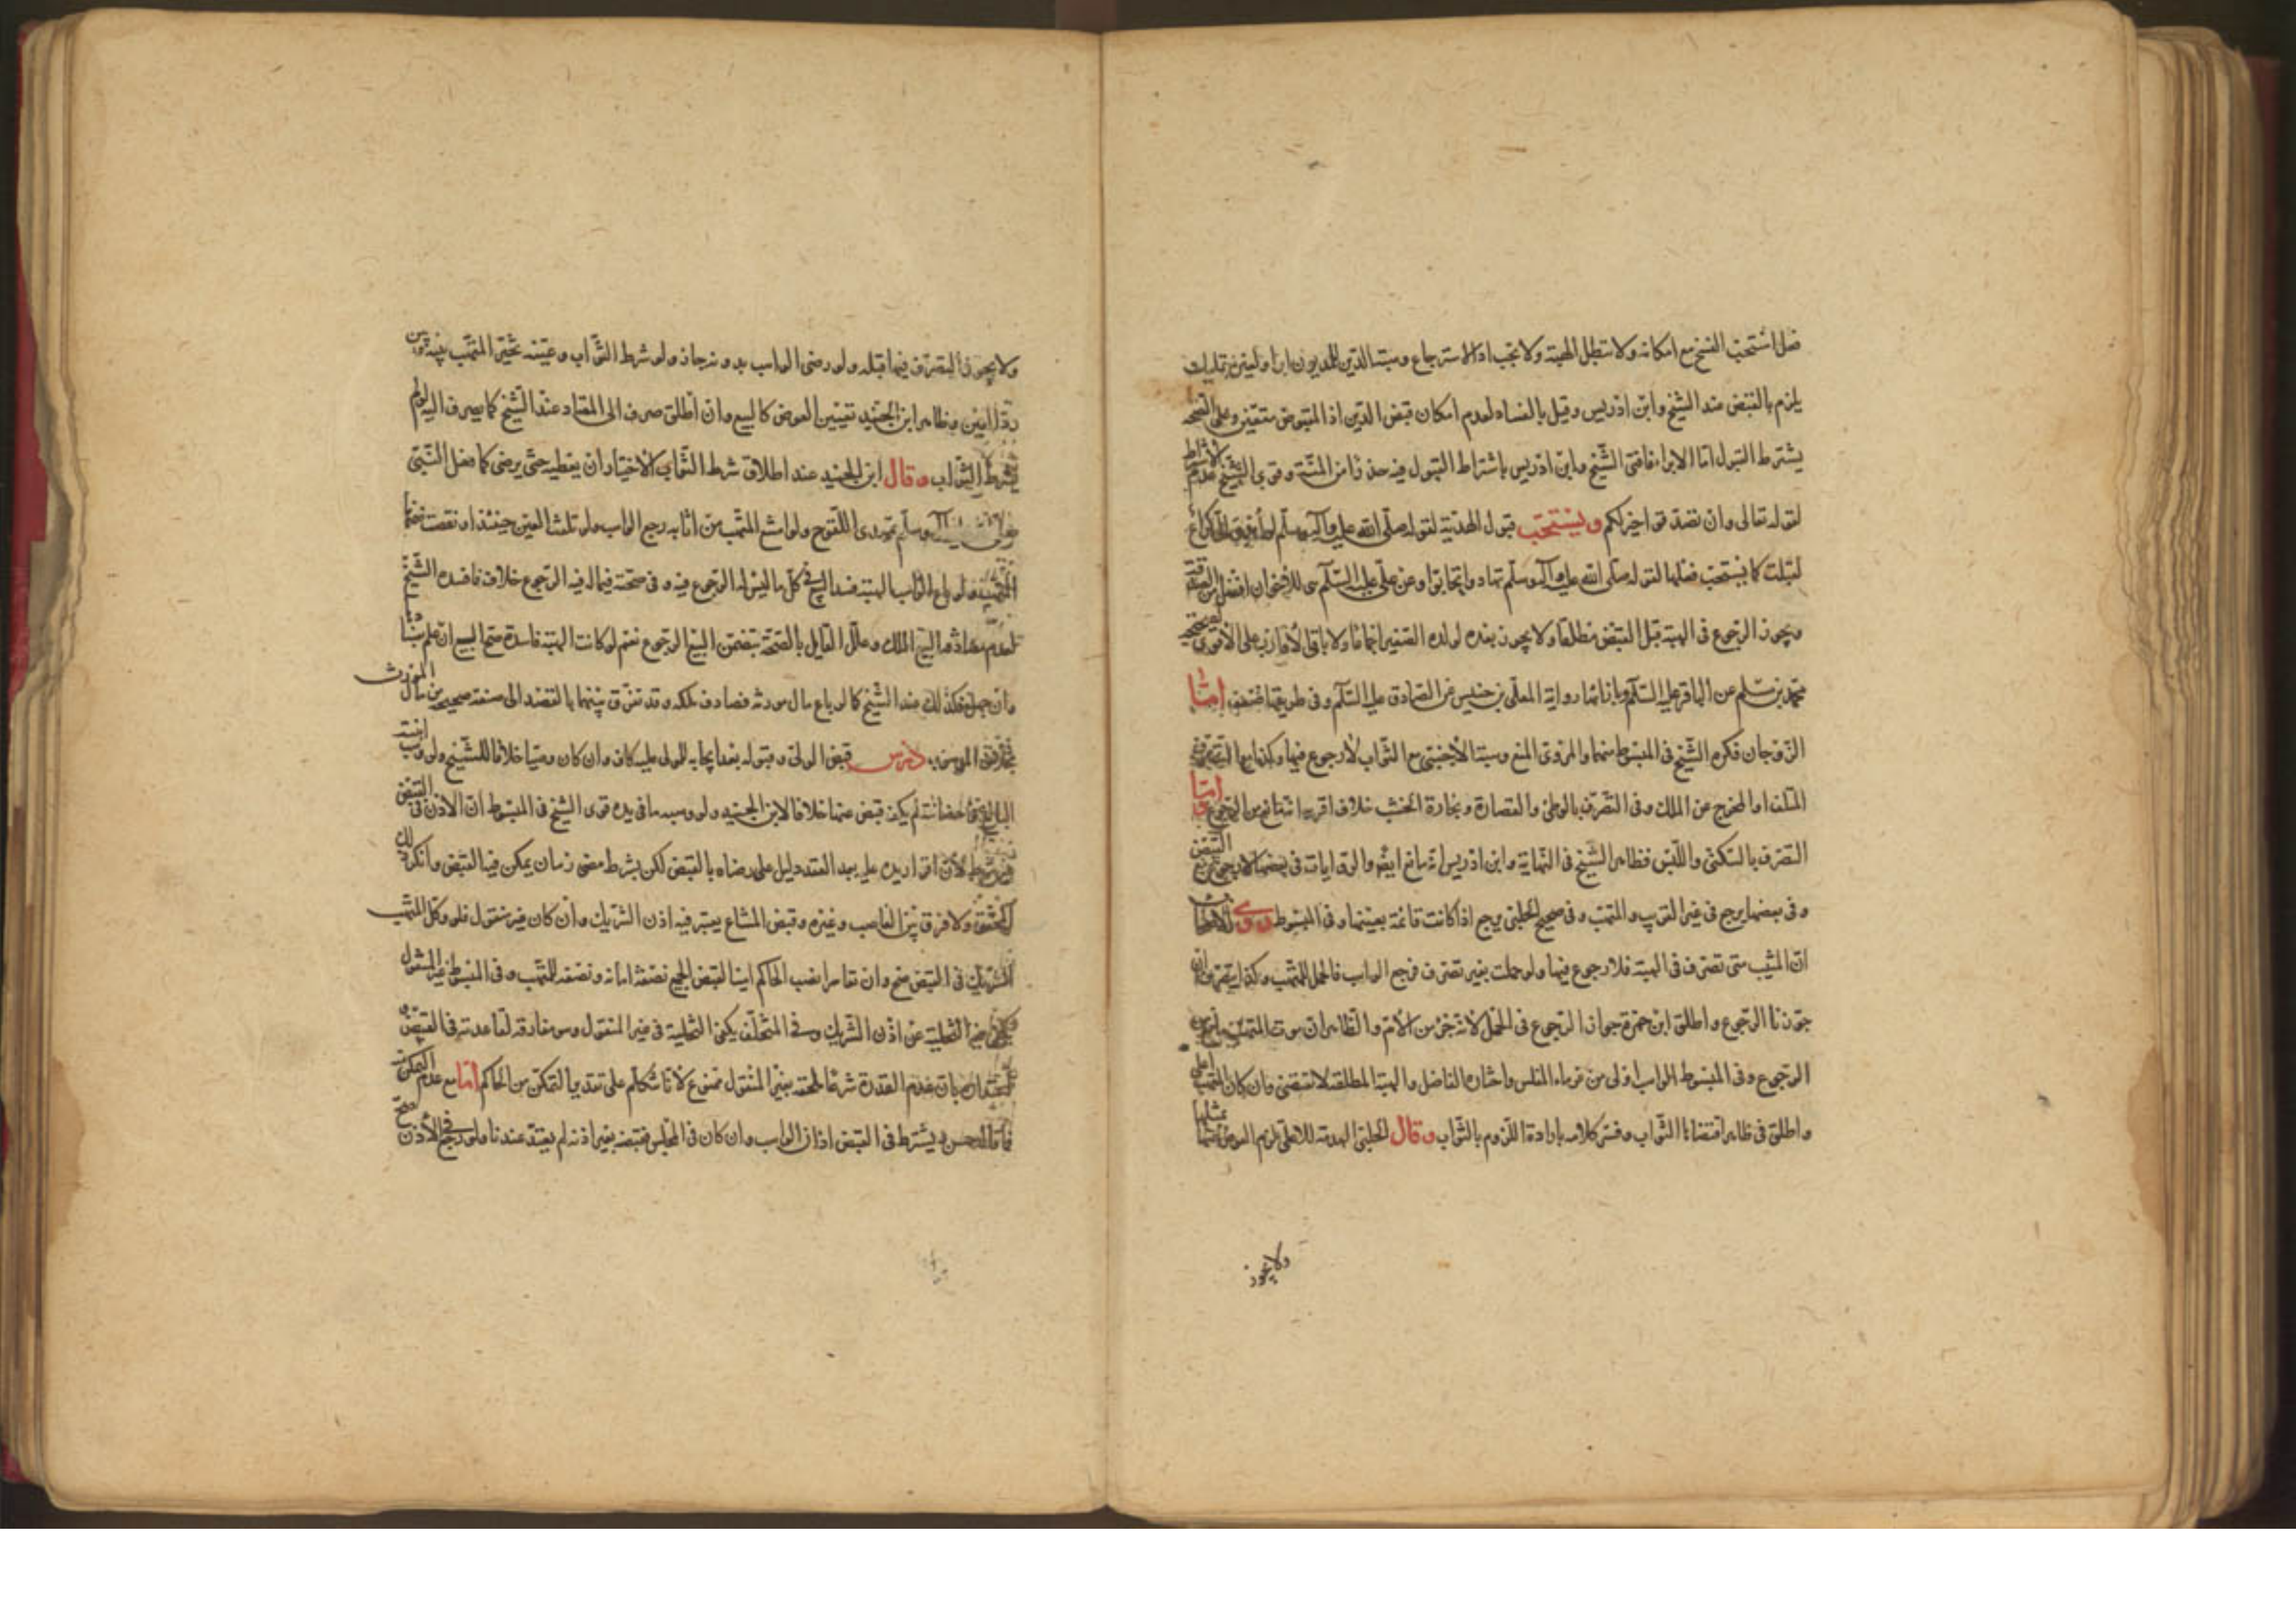 فعل استحب الفسخ مع امكانه ولا تبطل الهبة ولا يجب اداء الاسترجاع وهبة الدين للمديون ابراء ولغيره تمليك
يلزم بالقبض عند الشيخ وابن ادريس وقيل بالفساد لعدم امكان قبض الدين اذ المقبوض متعين وعلى الصحة
يشترط القبول اما الابراء فافتى الشيخ وابن ادريس باشتراط القبول فيه حذرا من المنة وقوى الشيخ عدم الاشتراط
لقوله تعالى وان تصدقوا خير لكم ويستحب قبول الهدية لقوله صلى الله عليه وآله وسلم لو اهدي الي كراع
لقبلت كما يستحب فعلها لقوله صلى الله عليه وآله وسلم تهادوا تحابوا وعن علي عليه السلام للاخوان افضل من الصدقة
ويجوز الرجوع في الهبة قبل القبض مطلقا ولا يجوز بعده لولده الصغير اجماعا ولا باقي الاقارب على الاقوى لصحيحة
محمد بن مسلم عن الباقر عليه السلام وبازائها رواية المعلى بن خنيس عن الصادق عليه السلام وفي طريقها ضعف اما
الزوجان فكره الشيخ في المبسوط منهما والمروي المنع وهبة الاجنبي مع الثواب لا رجوع فيها وكذا مع التصرف
المتلف او المخرج عن الملك وفي التصرف بالوطئ والقصارة ونجارة الخشب خلاف اقربه انه مانع من الرجوع اما
التصرف بالسكنى واللبس فظاهر الشيخ في النهاية وابن ادريس انه مانع ايضا والروايات في بعضها لا يرجع مع القبض
وفي بعضها يرجع في غير القريب والمثيب وفي صحيح الحلبي يرجع اذا كانت قائمة بعينها وفي المبسوط روى الاصحاب
ان المتهب متى تصرف في الهبة فلا رجوع فيها ولو حملت بغير تصرف فرجع الواهب فالحمل للمتهب وكذا
جوزنا الرجوع واطلق ابن حمزة جواز الرجوع في الحمل لانه جزء من الام والظاهر ان موت المتهب مانع من
الرجوع وفي المبسوط الواهب اولى من غرماء المفلس واختاره الفاضل والهبة المطلقة لا تقتضي وان كان المتهب اعلى
واطلق في ظاهر اقتضاءها الثواب وفسر كلامه بارادة اللزوم بالثواب وقال الحلبي الهدية للاعلى يلزم العوض عنها بمثلها
ولا يجوز
ولا يجوز التصرف فيها قبله ولو رضي الواهب بدونه جاز ولو شرط الثواب وعينه تخير المتهب بينه وبين
رد العين وظاهر ابن الجنيد تعيين العوض كالبيع وان اطلق صرف الى المعتاد عند الشيخ كما يصرف اليه لو لم
يشترط الثواب وقال ابن الجنيد عند اطلاق شرط الثواب الاختيار ان يعطيه حتى يرضى كما فعل النبي
صلى الله عليه وآله وسلم بمهدي اللقوح ولو امتنع المتهب من اثابه رجع الواهب ولو تلفت العين حينئذ او نقصت ضمنها
المتهب ولو باع الواهب الهبة فسد البيع في كل ما ليس له الرجوع فيه وفي صحته فيما له فيه الرجوع خلاف فافسده الشيخ
لعدم مصادفة البيع الملك وعلل القايل بالصحة بتضمن البيع الرجوع نعم لو كانت الهبة فاسدة صح البيع ان علم بفسادها
وان جهل فكذلك عند الشيخ كما لو باع مال مورثه فصادف ملكه وقد تفرق بينهما بالقصد الى صفة صحيحة من مال المورث
بخلاف الموهوب درس قبض الولي وقبوله بعد ايجابه للمولى عليه كاف وان كان وصيا خلافا للشيخ ولو وهب ابنته
البالغ في حضانته لم يكف قبض عنها خلافا لابن الجنيد ولو وهبه ما في يده قوى الشيخ في المبسوط ان الاذن في القبض
غير شرط لان اقرار يده عليه بعد العقد دليل على رضاه بالقبض لكن بشرط مضي زمان يمكن فيه القبض وانكر ذلك
المحقق ولا فرق بين الغاصب وغيره وقبض المشاع يعتبر فيه اذن الشريك وان كان غير منقول فلو وكل المتهب
الشريك في القبض صح وان تعاسرا نصب الحاكم امينا لقبض الجميع نصفه امانة ونصفه للمتهب وفي المبسوط غير المنقول
يكفي فيه التخلية عن اذن الشريك وفي المختلف يكفي التخلية في غير المنقول وهو مفارقة لقاعدته في القبض و
اعتذاره بان عدم القدرة شرعا ملحقة بغير المنقول ممنوع لانا نتكلم على تقدير التمكن من الحاكم اما مع عدم التمكن
فما قاله حسن ويشترط في القبض اذن الواهب وان كان في المجلس فقبضه بغير اذنه لم يعتد عندنا ولو رجع في الاذن صح